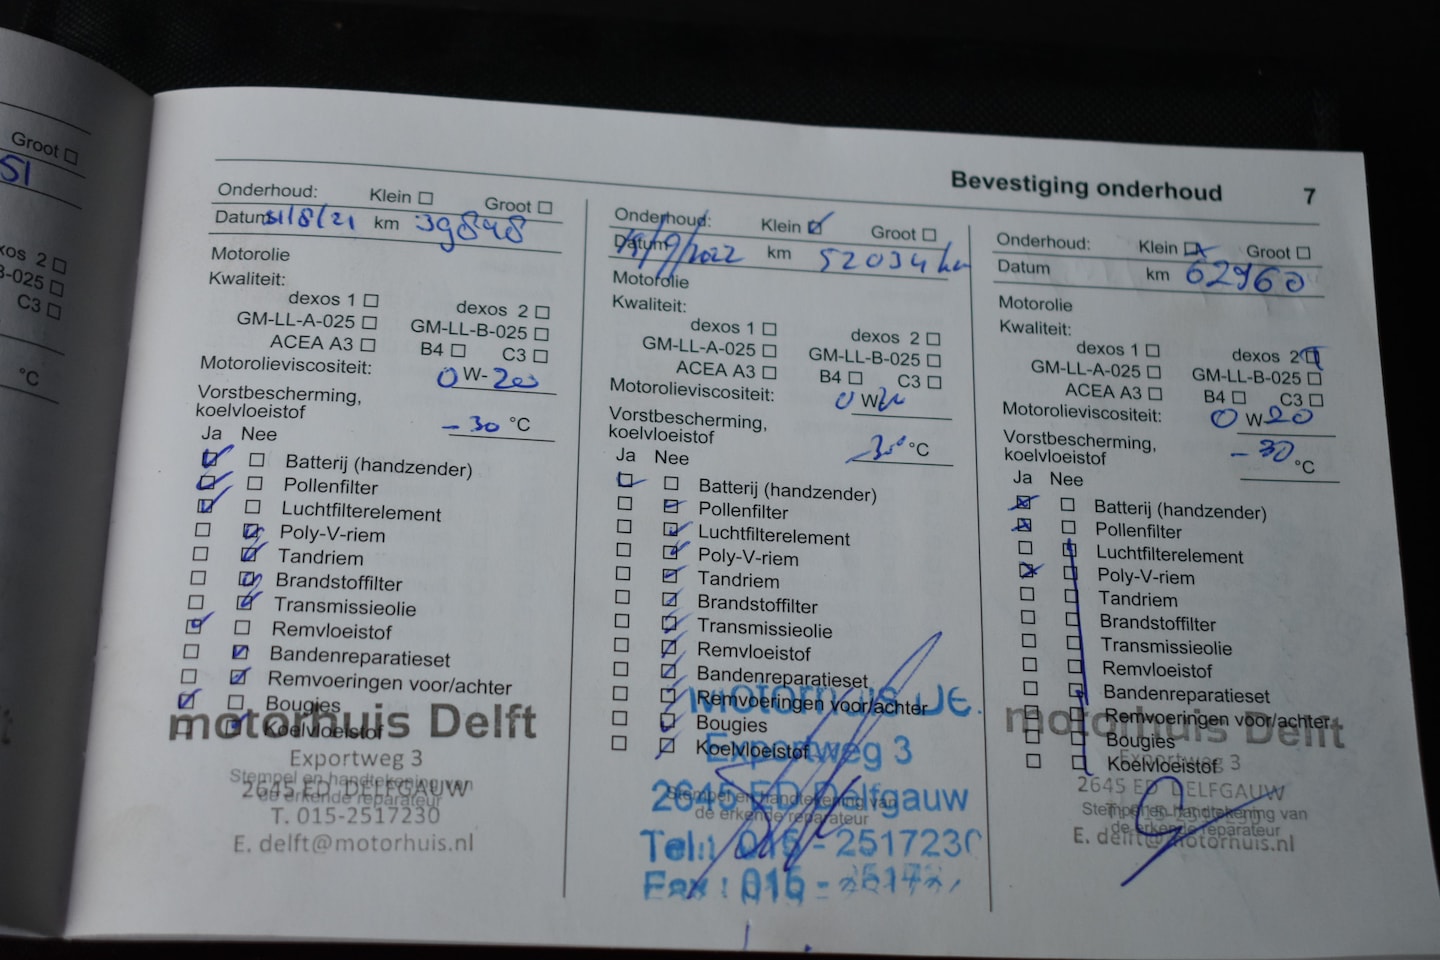 Groot
51
xos 2
B-025
C3
°C
Bevestiging onderhoud 7
Onderhoud: Klein Groot
Datum 31/8/21 km 39848
Motorolie
Kwaliteit:
dexos 1 dexos 2
GM-LL-A-025 GM-LL-B-025
ACEA A3 B4 C3
Motorolieviscositeit: 0 W- 20
Vorstbescherming,
koelvloeistof -30 °C
Ja Nee
Batterij (handzender)
Pollenfilter
Luchtfilterelement
Poly-V-riem
Tandriem
Brandstoffilter
Transmissieolie
Remvloeistof
Bandenreparatieset
Remvoeringen voor/achter
Bougies
Koelvloeistof
motorhuis Delft
Exportweg 3
Stempel en handtekening van
2645 ED DELFGAUW
de erkende reparateur
T. 015-2517230
E. delft@motorhuis.nl
Onderhoud: Klein Groot
Datum /9/2022 km 52034 km
Motorolie
Kwaliteit:
dexos 1 dexos 2
GM-LL-A-025 GM-LL-B-025
ACEA A3 B4 C3
Motorolieviscositeit: 0 W
Vorstbescherming,
koelvloeistof -30 °C
Ja Nee
Batterij (handzender)
Pollenfilter
Luchtfilterelement
Poly-V-riem
Tandriem
Brandstoffilter
Transmissieolie
Remvloeistof
Bandenreparatieset
Remvoeringen voor/achter
Bougies
Koelvloeistof
Motorhuis De
Exportweg 3
2645 ED Delfgauw
Stempel en handtekening van
de erkende reparateur
Tel.: 015 - 2517230
Fax : 015 -
Onderhoud: Klein Groot
Datum km 62960
Motorolie
Kwaliteit:
dexos 1 dexos 2
GM-LL-A-025 GM-LL-B-025
ACEA A3 B4 C3
Motorolieviscositeit: 0 W 20
Vorstbescherming,
koelvloeistof -30 °C
Ja Nee
Batterij (handzender)
Pollenfilter
Luchtfilterelement
Poly-V-riem
Tandriem
Brandstoffilter
Transmissieolie
Remvloeistof
Bandenreparatieset
Remvoeringen voor/achter
Bougies
Koelvloeistof
motorhuis Delft
Exportweg 3
2645 ED DELFGAUW
Stempel en handtekening van
de erkende reparateur
E. delft@motorhuis.nl